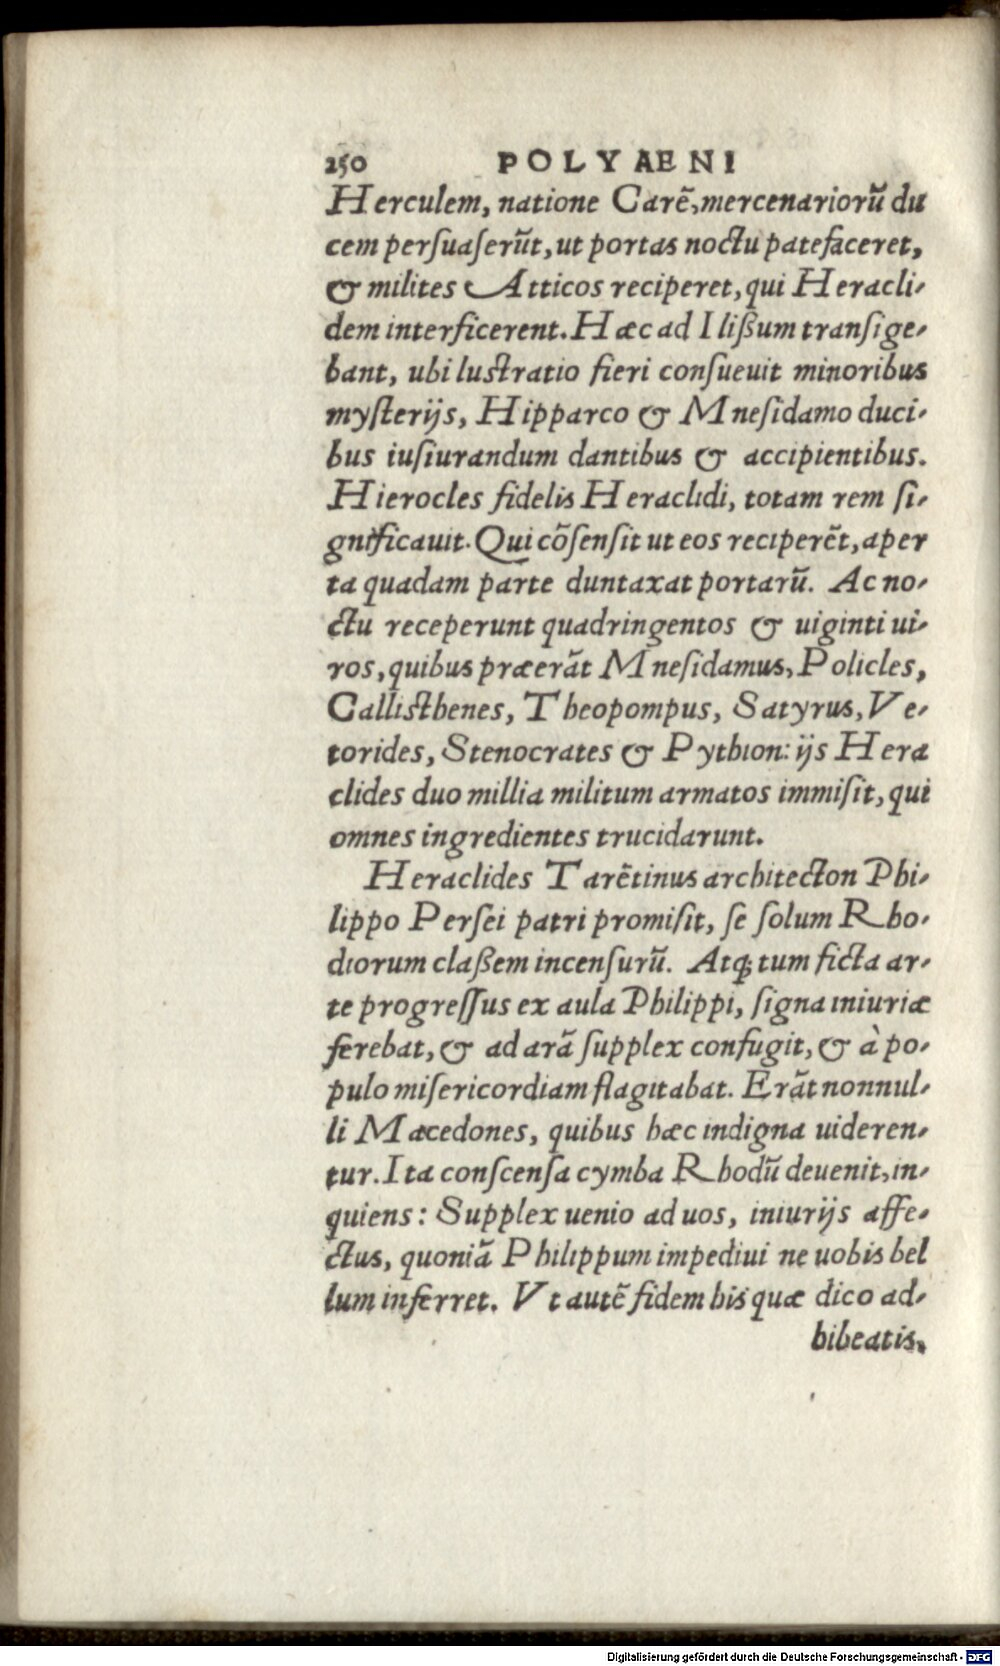 250 POLYAENI
Herculem, natione Carē, mercenariorū du
cem persuaserūt, ut portas noctu patefaceret,
& milites Atticos reciperet, qui Heracli-
dem interficerent. Hæc ad Ilißum transige-
bant, ubi lustratio fieri consueuit minoribus
mysterijs, Hipparco & Mnesidamo duci-
bus iusiurandum dantibus & accipientibus.
Hierocles fidelis Heraclidi, totam rem si-
gnificauit. Qui cōsensit ut eos reciperēt, aper
ta quadam parte duntaxat portarū. Ac no-
ctu receperunt quadringentos & uiginti ui-
ros, quibus præerāt Mnesidamus, Policles,
Callisthenes, Theopompus, Satyrus, Ve-
torides, Stenocrates & Pythion: ijs Hera
clides duo millia militum armatos immisit, qui
omnes ingredientes trucidarunt.
Heraclides Tarētinus architecton Phi-
lippo Persei patri promisit, se solum Rho-
diorum claßem incensurū. Atq; tum ficta ar-
te progressus ex aula Philippi, signa iniuriæ
ferebat, & ad arā supplex confugit, & à po-
pulo misericordiam flagitabat. Erāt nonnul-
li Macedones, quibus hæc indigna uideren-
tur. Ita conscensa cymba Rhodū deuenit, in-
quiens: Supplex uenio ad uos, iniurijs affe-
ctus, quoniā Philippum impediui ne uobis bel
lum inferret. Vt autē fidem his quæ dico ad-
hibeatis,
Digitalisierung gefördert durch die Deutsche Forschungsgemeinschaft - DFG